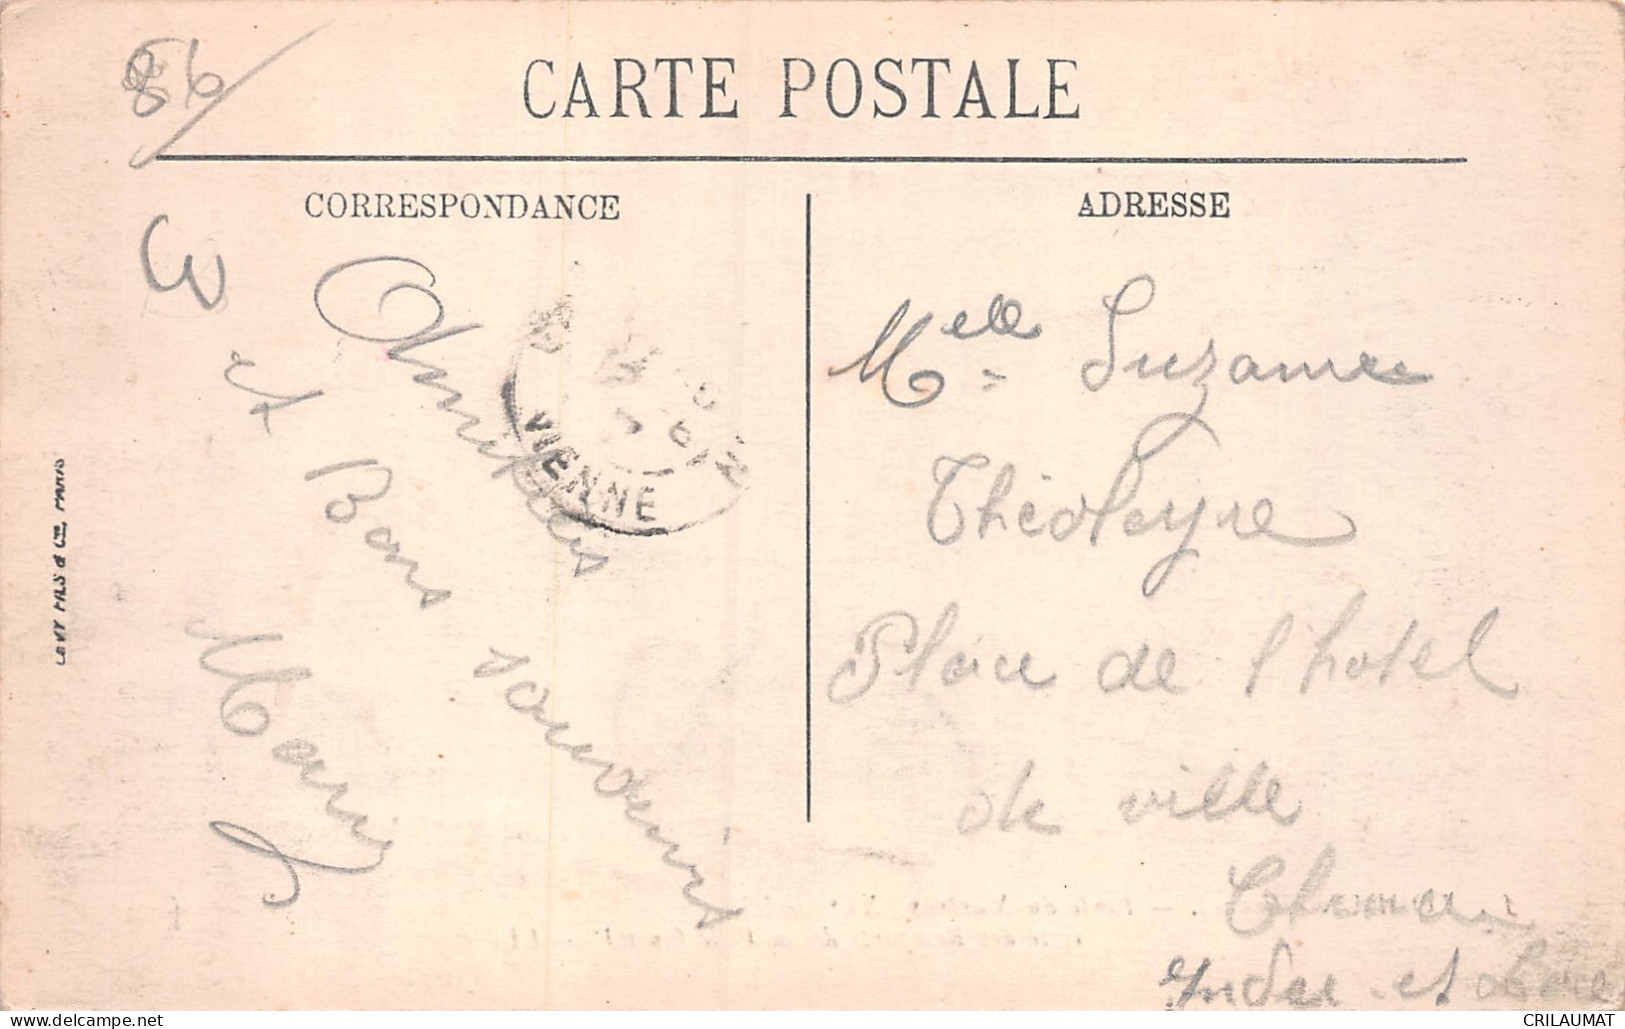 86
CARTE POSTALE
CORRESPONDANCE
ADRESSE
3
Amitiés
et Bons
souvenirs
Marie
VIENNE
LEVY FILS & Cie, PARIS
Melle Suzanne
Théoleyre
Place de l'hotel
de ville
Indre et Loire
CRILAUMAT